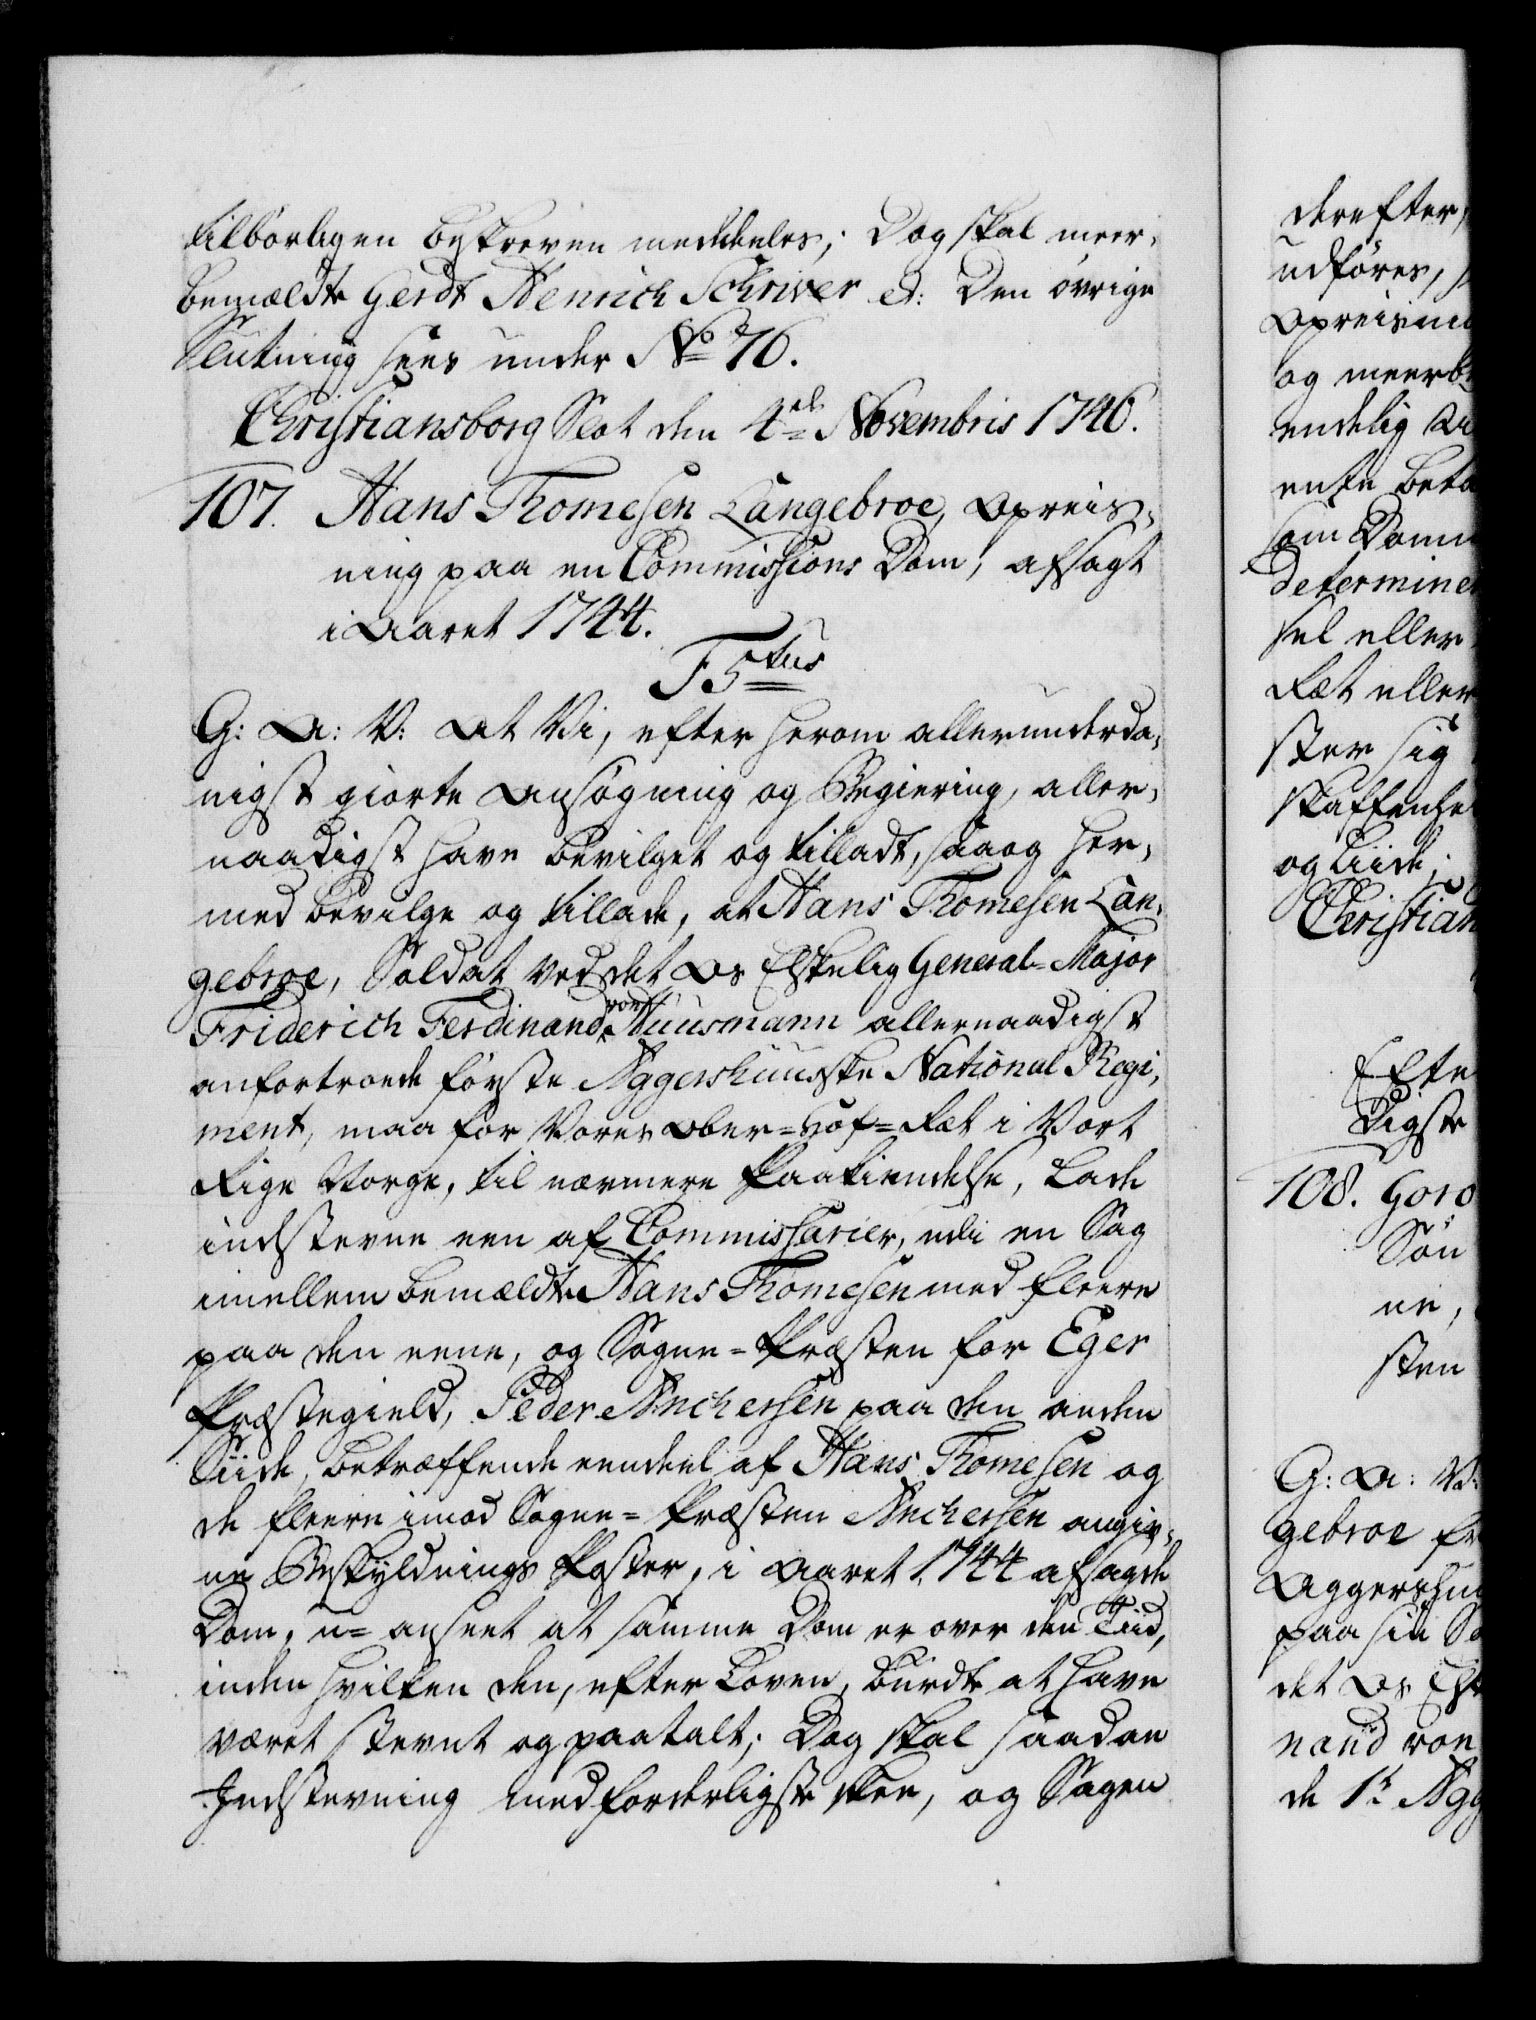 tilbörligen beskreven meddeeles; Dog skal meer-
bemældte Gerdt Henrich Schriver et: Den övrige
Slutning sees under No 76.
Christiansborg Slot den 4de Novembris 1746.
107. Hans Thomesen Langebroe, Opreis-
ning paa en Commissions Dom, afsagt
i Aaret 1744.
F 5tus
G: A: V: At Vi, efter herom allerunderda-
nigst giorte Ansögning og Begiering, aller-
naadigst have bevilget og tilladt, saa og her-
med bevilge og tillade, at Hans Thomesen Lan-
gebroe, Soldat ved det Os Elskelig General-Major
Friderich Ferdinand von Huusmann allernaadigst
anfortroede förste Aggershuusske National Regi-
ment, maa for Vores Ober-Hof-Ræt i Vort
Rige Norge, til nærmere Paakiendelse, lade
indstevne een af Commissarier, udi en Sag
imellem bemældte Hans Thomesen med fleere
paa den eene, og Sogne-Præsten for Eger
Præstegield, Peder Anchersen paa den anden
Siide, betræffende eendeel af Hans Thomesen og
de fleere imod Sogne-Præsten Anchersen angiv-
ne Beskyldnings Poster, i Aaret 1744 afsagde
Dom, u-anseet at samme Dom er over den Tiid,
inden hvilken den, efter Loven, burdte at have
været stevnt og paatalt; Dog skal saadan
Indstevning med forderligste skee, og Sagen
derefter,
udföres,
Opreisni
og meerb
endelig
ente beta
som Dom
determine
sel eller
Ræt eller
ster sig
skaffenhe
og Liide;
Christian
Efte
digste
108. Goro
Sön
ne,
sten
G: A: V:
gebroe fr
Aggershu
paa sin Sö
det Os Els
nand von
de 1te Agg